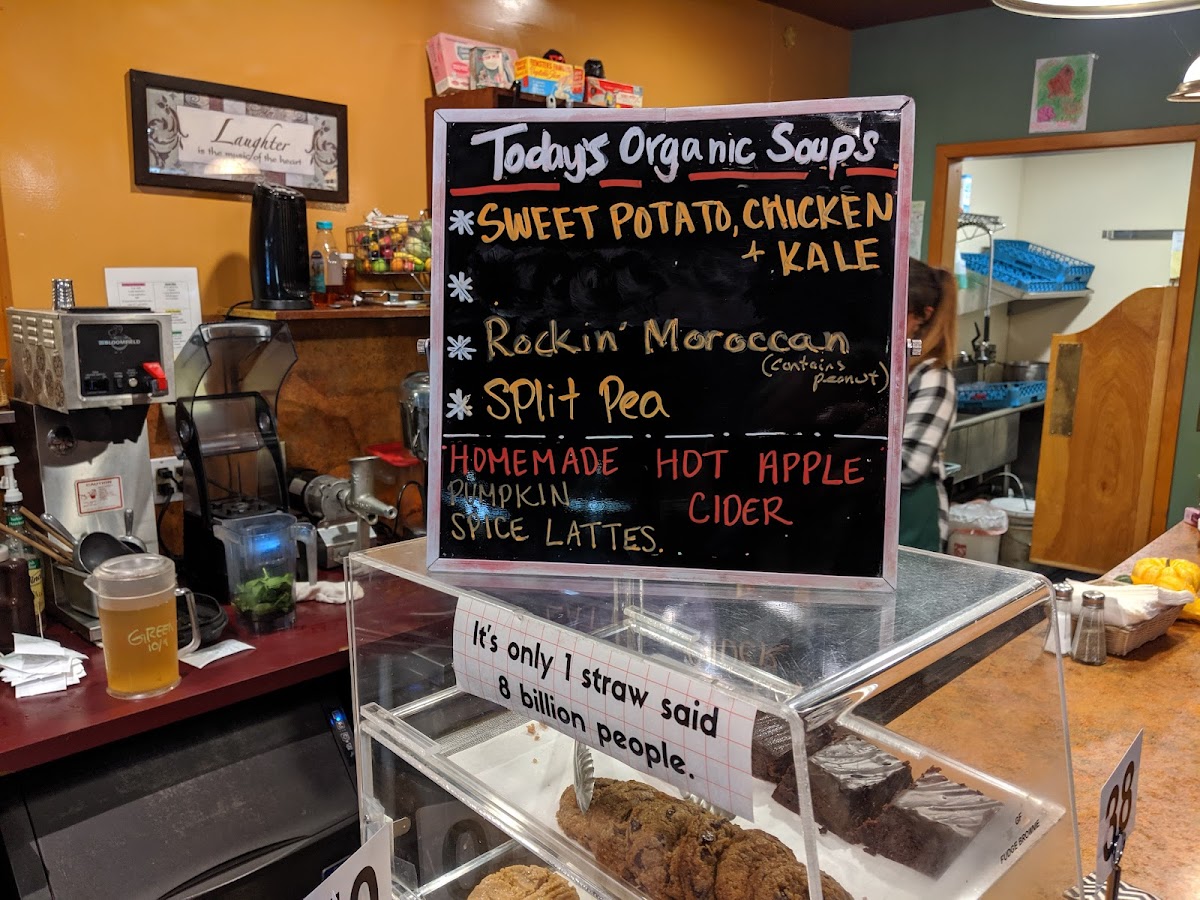 Laughter
is the music of the heart
Today's Organic Soup's
* SWEET POTATO, CHICKEN
+ KALE
*
* Rockin' Moroccan
(contains
peanut)
* Split Pea
HOMEMADE HOT APPLE
CIDER
PUMPKIN
SPICE LATTES.
BLOOMFIELD
CAUTION
GREEN
10/9
It's only 1 straw said
8 billion people.
GF
FUDGE BROWNIE
38